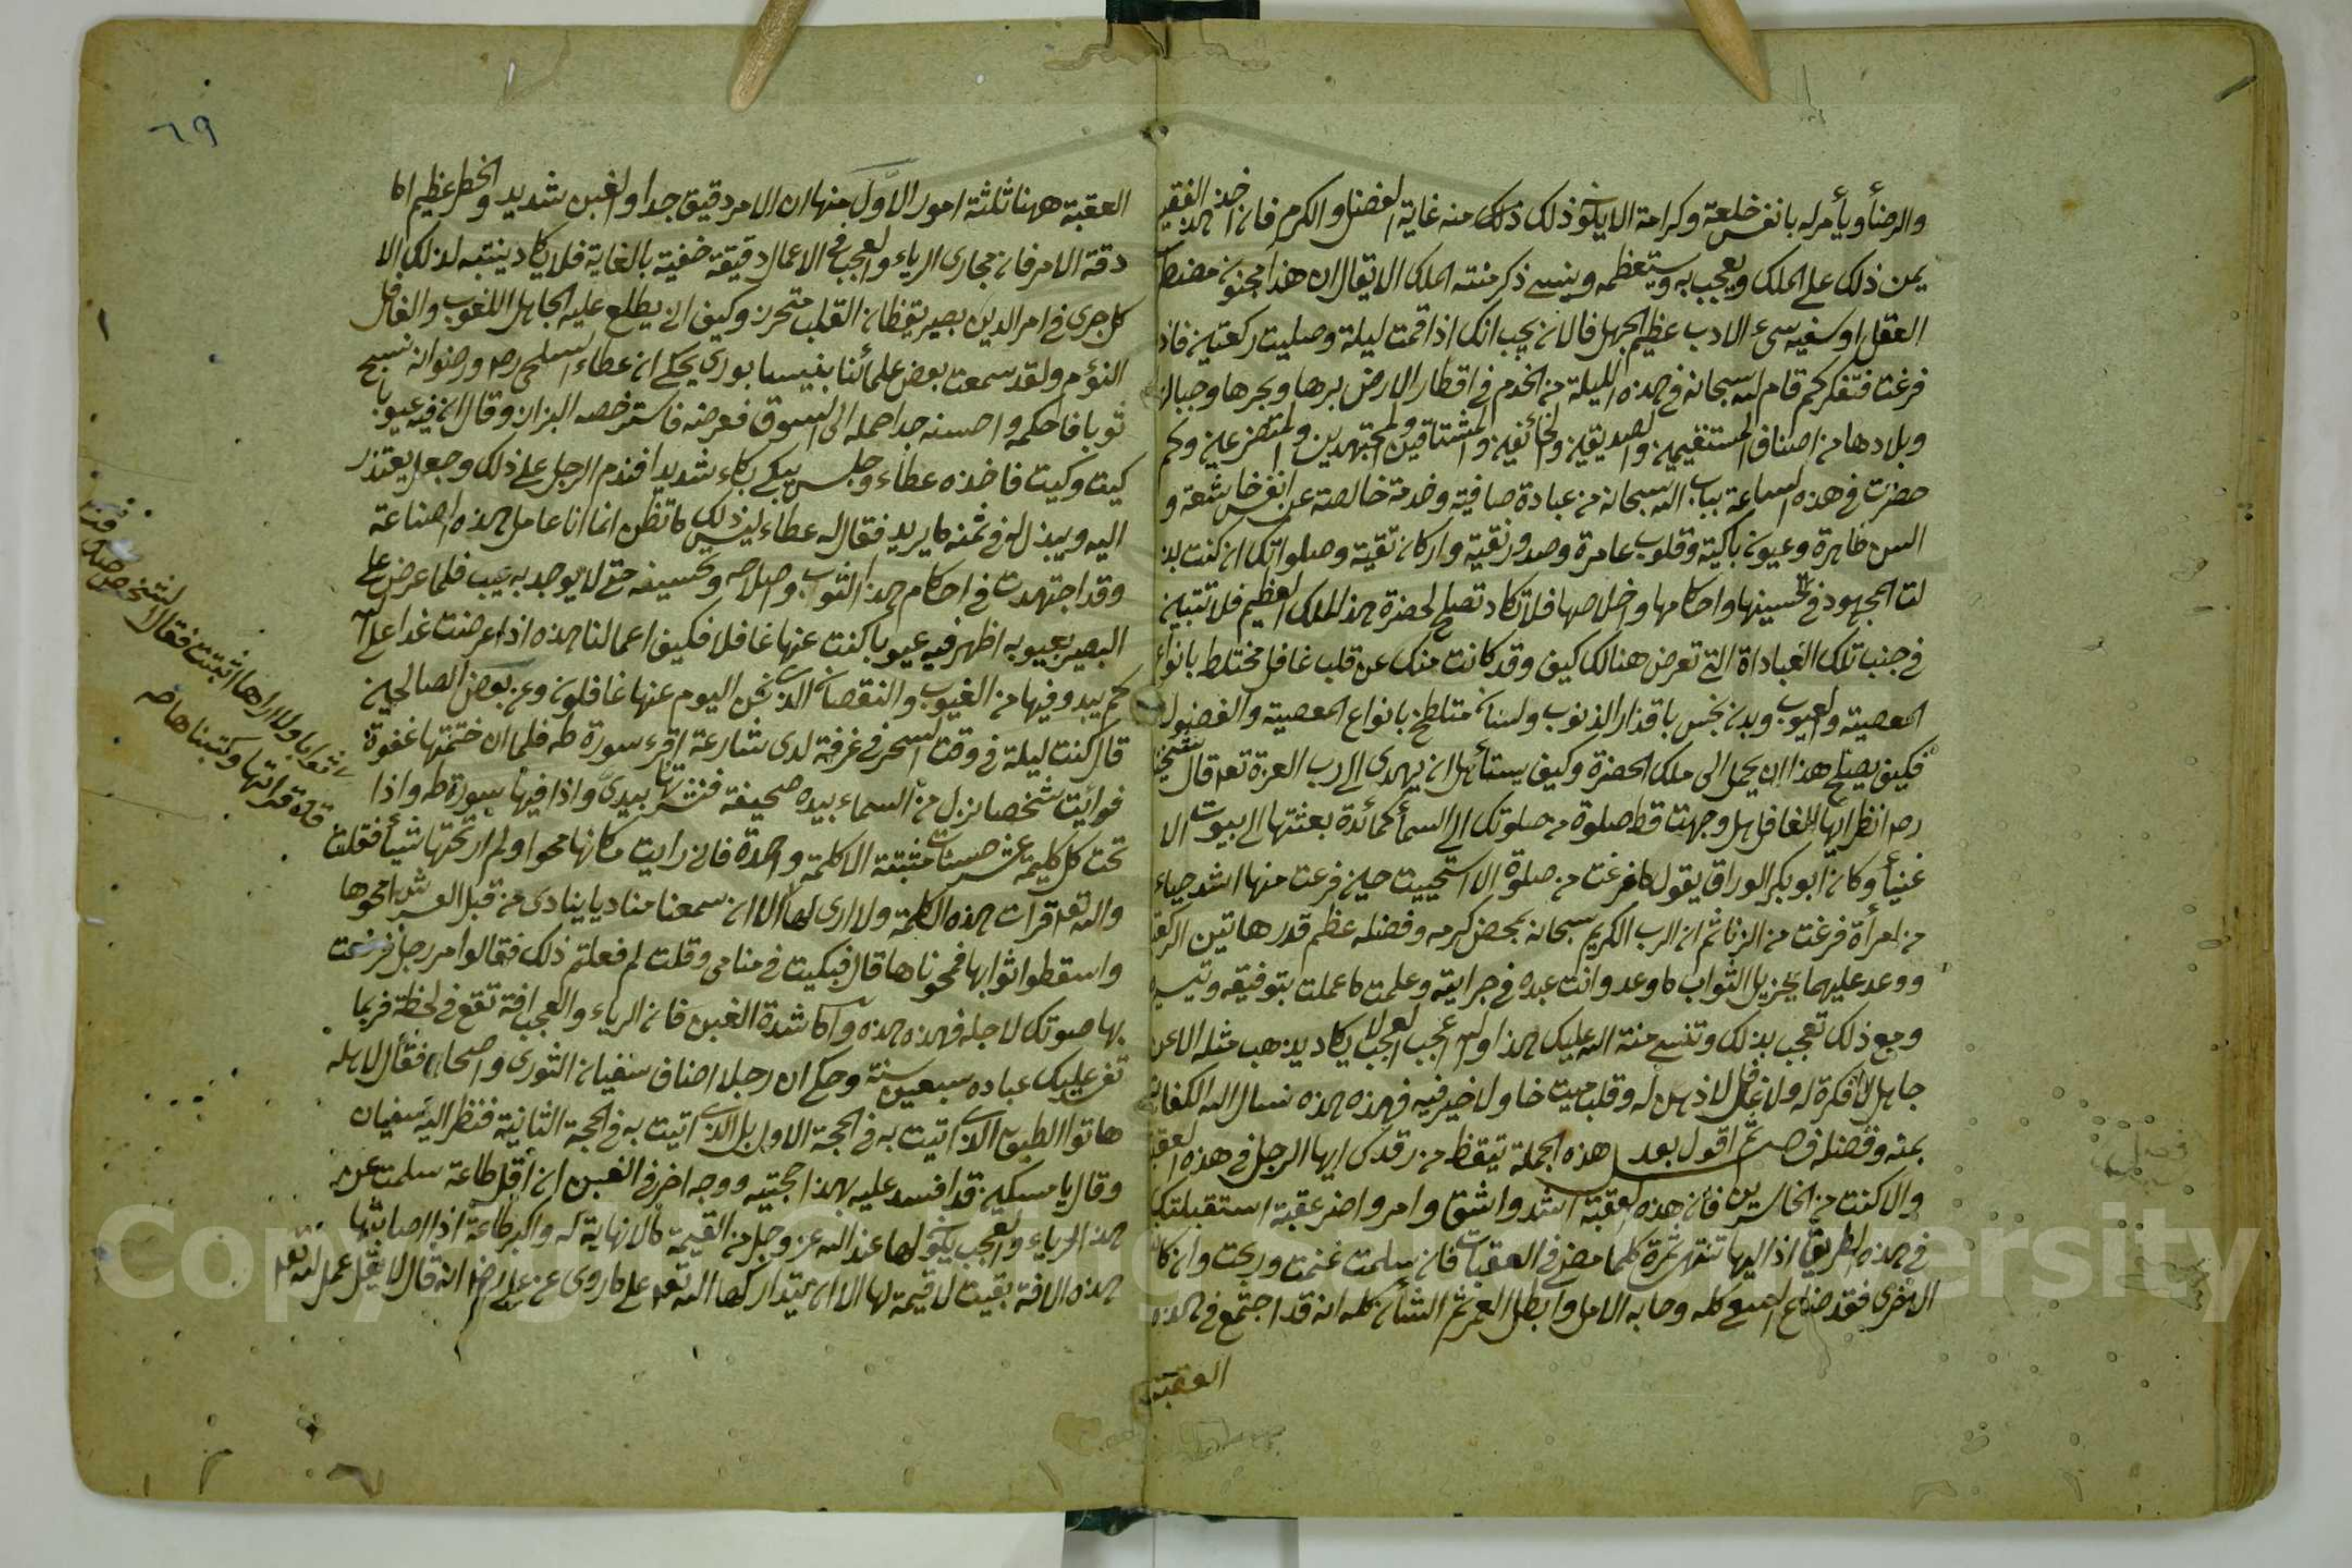 والرضأ ويأمر له بانفس خلعة وكرامة الا يكون ذلك ذلك منه غاية الفضل والكرم فان اخذ هذا الفقير
يمن ذلك على الملك ويعجب به ويستعظمه وينسى ذكر منته الملك الا يقال ان هذا مجنون مضطر
العقل او سفيه سىء الادب عظيم الجهل فالان يجب انك اذا قمت ليلة وصليت ركعتين فاذ
فرغت فتفكر كم قام لله سبحانه فى هذه الليلة من الخدم فى اقطار الارض برها وبحرها وجبالها
وبلادها من اصناف المستقيمين والصديقين والخائفين والمشتاقين والمجتهدين والمتضرعين وكم
حضرت فى هذه الساعة بباب الله سبحانه من عبادة صافية وخدمة خالصة عن انفس خاشعة و
السن طاهرة وعيون باكية وقلوب عامرة وصدور نقية واركان تقية وصلواتك ان كنت بذ
لت المجهود فى تحسينها واحكامها واخلاصها فلا تكاد تصلح لحضرة هذا الملك العظيم فلا تتبين
فى جنب تلك العباداة التى تعرض هنالك كيف وقد كانت منك عن قلب غافل مختلط بانواع
المعصية والعيوب وبدن نجس باقذار الذنوب ولسان متلطخ بانواع المعصية والفضول
فكيف يصلح هذا ان يحمل الى ملك الحضرة وكيف يستأهل ان يهدى الى رب العزة تعه قال شيخنا
رحه انظر ايها الغافل هل وجهت قط صلوة من صلوتك الى السمأ كمائدة بعثتها الى بيوت الا
غنيأ وكان ابو بكر الوراق يقول ما فرغت من صلوة الا استحييت حين فرغت منها اشد حياء
من امرأة فرغت من الزنا ثم ان الرب الكريم سبحانه بمحض كرمه وفضله عظم قدر هاتين الركعـ
ووعد عليهما بجزيل الثواب ما وعد وانت عبده فى جرايته وعلمت ما عملت بتوفيقه وتيسيره
ومع ذلك تعجب بذلك وتنسى منة الله عليك هذا والله اعجب العجب لا يكاد يذهب مثله الا عن
جاهل لا فكرة له ولا غافل لا ذهن له وقلب ميت خاو لا خير فيه فهذه هذه نسال الله الكفاية
بمنه وفضله فصل ثم اقول بعد هذه الجملة تيقظ من رقدتك ايها الرجل فى هذه العقبة
والا كنت من الخاسرين فان هذه العقبة اشد واشق وامر واضر عقبة استقبلتك
فى هذه الطريق اذ اليها تنتهى ثمرة كلما مضى فى العقبات فان سلمت غنمت وربحت وان كان
الاخرى فقد ضاع السعى كله وخابه الامل وابطل العمر ثم الشأن كله انه قد اجتمع فى هذه
العقبة
٦٩
العقبة ههنا ثلثة امور الاول منها ان الامر دقيق جدا والغبن شديد والخطر عظيم اما
دقة الامر فان مجارى الرياء والعجب فى الاعمال دقيقة خفية بالغاية فلا يكاد ينتبه لذلك الا
كل جرى فى امر الدين بصير يقظان القلب متحرز وكيف ان يطلع عليه الجاهل اللغوب والغافل
النؤم ولقد سمعت بعض علمائنا بنيسابورى يحكى ان عطاء السلمى رحه ورضوانه نسج
ثوبا فاحكمه واحسنه جدا حمله الى السوق فعرضه فاسترخصه البزان وقال ان فيه عيوبا
كيت وكيت فاخذه عطاء وجلس يبكى بكاء شديدا فندم الرجل على ذلك وجعل يعتذر
اليه ويبذل له فى ثمنه ما يريد فقال له عطاء ليس ذلك ما تظن انما انا عامل هذه الصناعة
وقد اجتهدت فى احكام هذا الثوب وصلاحه وتحسينه حتى لا يوجد به عيب فلما عرض على
البصير بعيوبه اظهر فيه عيوبا كنت عنها غافلا فكيف اعمالنا هذه اذا عرضت غدا على الله
كم يبدو فيها من العيوب والنقصان الذى نحن اليوم عنها غافلون وعن بعض الصالحين
قال كنت ليلة فى وقت السحر فى غرفة لدى شارعة اقرء سورة طه فلما ان ختمتها غفوة
فرأيت شخصا نزل من السماء بيده صحيفة فنشرها بيدى واذا فيها سورة طه واذا
تحت كل كلمة عشر حسنات مثبتة الا كلمة واحدة فانى رايت مكانها محوا ولم ار تحتها شيأ فقلت
والله تعه قرات هذه الكلمة ولا ارى لها الا ان سمعنا مناديا ينادى من قبل العرش امحوها
واسقطوا ثوابها فمحوناها قال فبكيت فى منامى وقلت لم فعلتم ذلك فقالوا مر رجل فرفعت
بها صوتك لاجله فهذه هذه واما شدة الغبن فان الرياء والعجب افة تقع فى لحظة فربما
تفسد عليك عباده سبعين سنة وحكى ان رجلا اضاف سفيان الثورى واصحابه فقال لاهله
هاتوا الطبق الذى اتيت به فى الحجة الاول بل الذى اتيت به فى الحجة الثانية فنظر اليه سفيان
وقال يا مسكين قد افسد عليه بهذا حجتيه ووجه اخر فى الغبن ان اقل طاعة سلمت عن
هذا الرياء والعجب يكون لها عند الله عز وجل من القيمة ما لا نهاية له واكبر طاعة اذا اصابتها
هذه الافة بقيت لا قيمة لها الا ان يتداركها الله تعه على ما روى عن على رضه انه قال لا يقل عمل لله تعه
ثوابا ولا اراها اثبتت فقال الشخص صدقت
قد قراتها وكتبناها صح